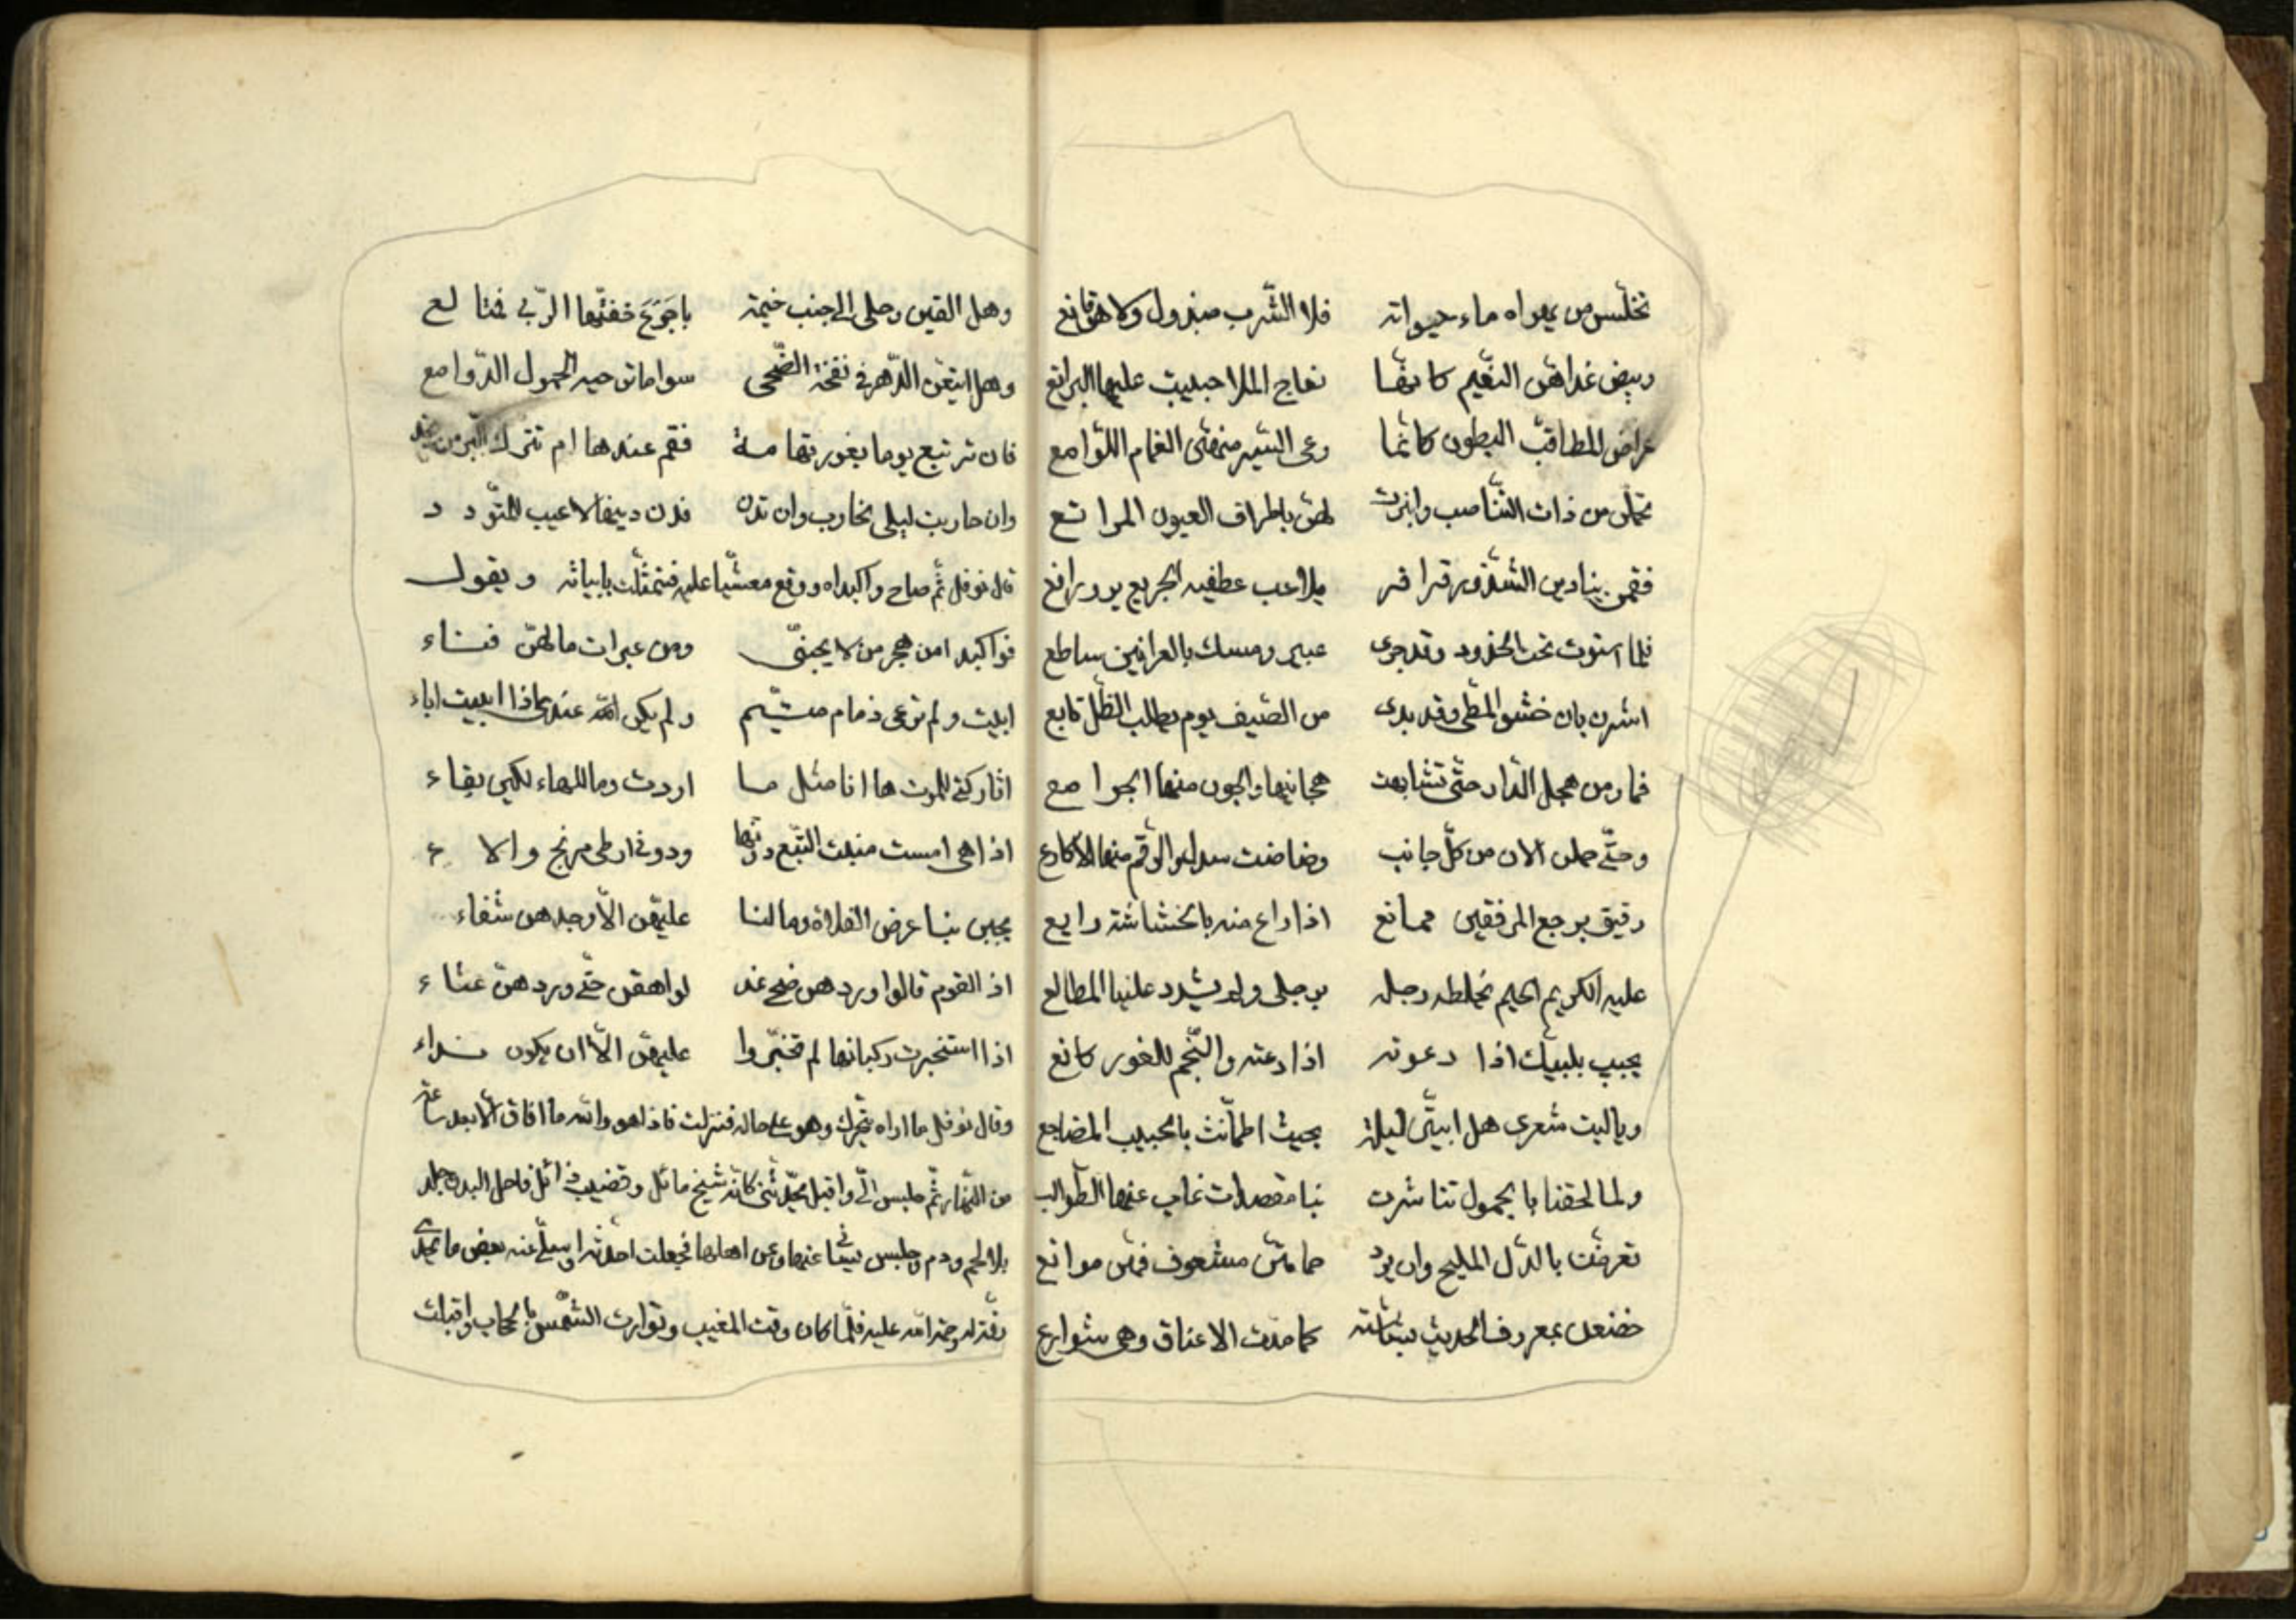 تخلّس من يهواه ماء حيواته فلا الشّرب مبذول ولا هو قانع
وبيض غداهنّ النّعيم كانّها نعاج الملا حبيبت عليها البراقع
عراض المطا قبّ البطون كانّما وعى السّير منهنّ الغمام اللّوامع
تحملن من ذات التّناصب وانبرت لهنّ باطراف العيون المراتع
يلاعب عطفيه الجريع
فلما استوت تحت الخدود وقد جرى عبير ومسك بالعرانين ساطع
اشرن بان خشو المطى وقد بدى من الصّيف يوم يطلب الظّل تابع
فما رمن هجل الدّار حتّى تشابهت هجانيها والجون منها الجوامع
وحتّى حملن الان من كلّ جانب وضاضت الرّقم منها الاكارع
رقيق برجع المرفقين ممانع اذا راع منه بالخشاشة رايع
عليه الكريم الحيم تخلطه رجله برجلى ولم يشدد علينا المطالع
يجيب بلبيك اذا دعوته اذا دعته والنّجم للغور كانع
وياليت شعرى هل ابيتنّ ليلة بحيث اطمأنّت بالحبيب المضاجع
ولما لحقنا بالحمول تناشرت بنا مقصدات غاب عنها الطّوالب
تعرضت بالدّل المليح وان يرد حماهنّ مشعوف فهنّ موانع
خضعن بمعروف الحديث بشاشة كما مدّت الاعناق وهى شوارع
وهل القين رحلى الى جنب خيمة باجرع حفتها الرّبى فتالع
وهل اتبعن الدّهر فى نفخة الضّحى سواما الحمول الدّوامع
فان ترتبع يوما بغور تهامة فقم عندها ام تترك
وان حاربت ليلى نحارب وان تدن فدن دينها لا عيب للتّودد
قال نوفل ثم صاح واكبداه ووقع مغشيّا عليه فتمثّلت بابياته ويقول
فواكبدا من هجر من لا يحبنّى ومن عبرات ما لهنّ فناء
ابيت ولم ترعى ذمام متيّم ولم يكن الله عندى ماذا ابيت اباء
اتاركتى للموت ها انا مثل ما اردت وما للهاء لكين بقاء
اذا هى امست منبت التّبع دونها ودونى ارطى مرنج والاء
يجبن بنا عرض الفلاة وما لنا عليهنّ الّا وجدهن شفاء
اذ القوم قالوا وردهن ضحى غد لواهقن حتّى وردهنّ عشاء
اذا استخبرت ركبانها لم تخبّروا عليهنّ الّا ان يكون نداء
وقال نوفل ما اراه يتحرك وهو على حاله فنزلت فاذا هو والله ما افاق الّا بعد ساعة
من النّهار ثم جلس الىّ واقبل يحدّثنى كانّه شيخ ماثل وقضيب ذابل ناحل البدن جلد
بلا لحم ودم وجلس يسئلنى عنها وعن اهلها فجعلت احدّثه واسلّى عنه بعض ما يجد
رقّة له رحمة الله عليه فلمّا كان وقت المغيب وتوارت الشّمس بالحجاب واقبلت